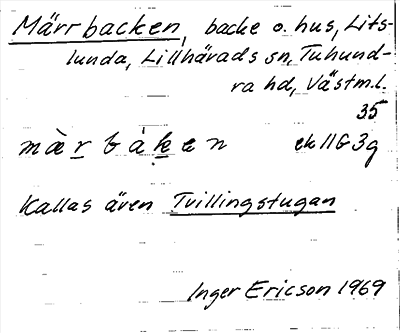 Märrbacken, backe o. hus, Lits-
lunda, Lillhärads sn, Tuhund-
ra hd, Västm.l.
35
mær bàken ek 11G 3g
Kallas även Tvillingstugan
Inger Ericson 1969